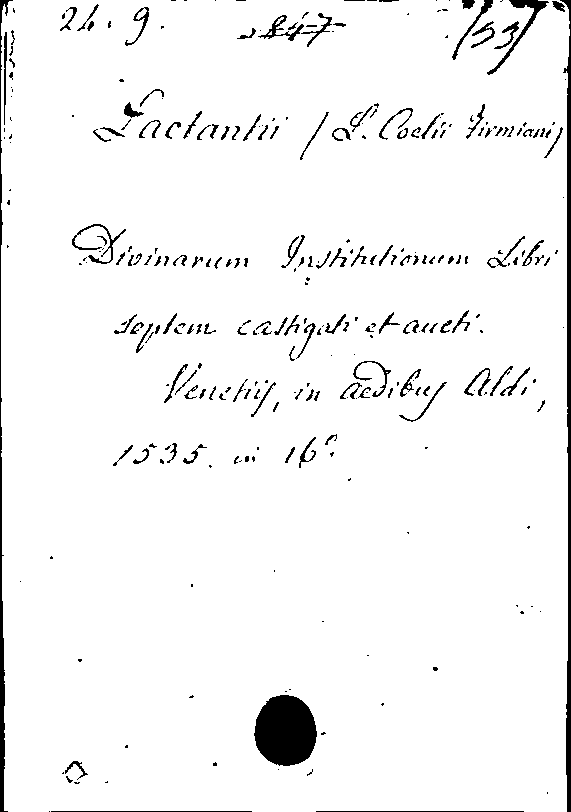 24. 9. 847 (53)
Lactantii (L. Coelii Firmiani)
Divinarum Institutionum Libri
septem castigati et aucti.
Venetiis, in aedibus Aldi,
1535. in 16º